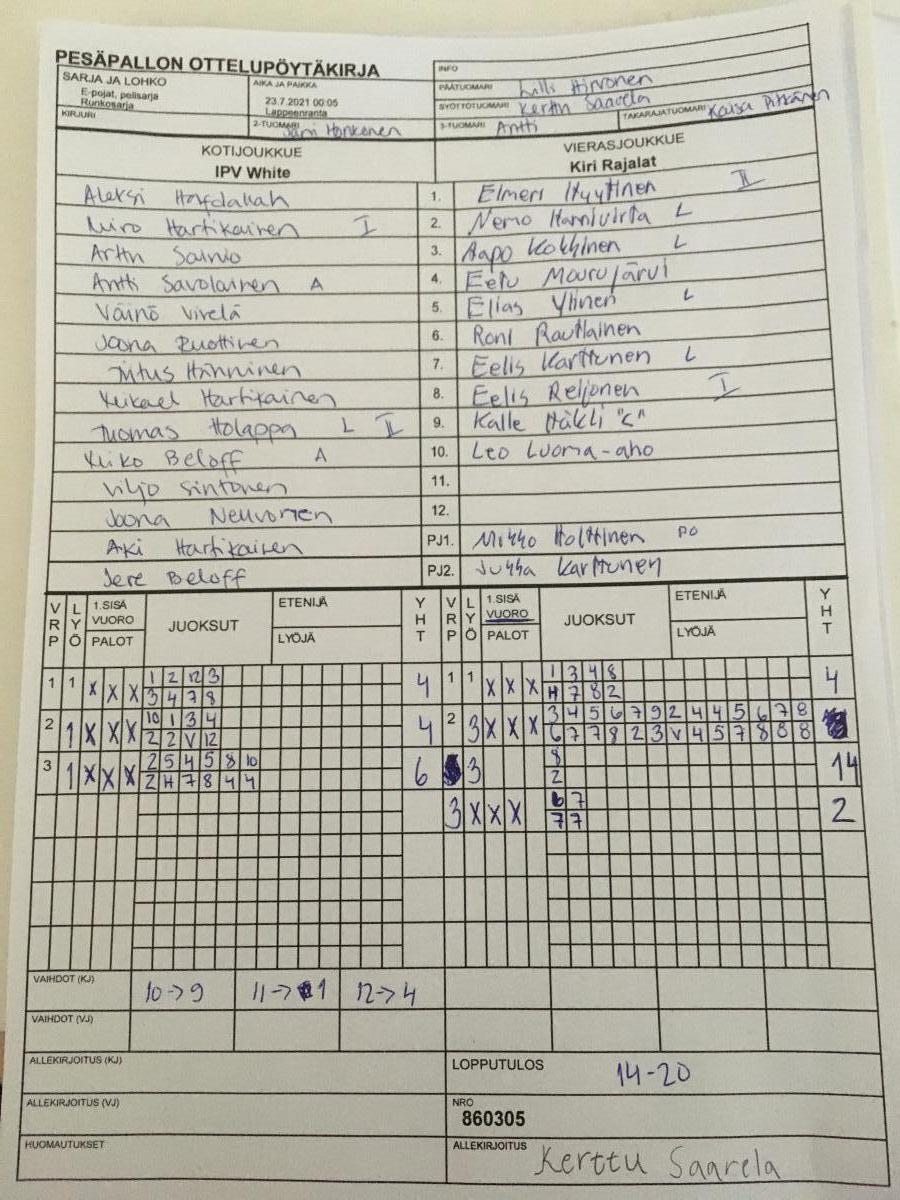 PESÄPALLON OTTELUPÖYTÄKIRJA
INFO
SARJA JA LOHKO
E-pojat, pelisarja
Runkosarja
AIKA JA PAIKKA
23.7.2021 00:05
Lappeenranta
PÄÄTUOMARI Hirvonen
SYÖTTÖTUOMARI Kerttu Saarela
KIRJURI
2-TUOMARI Jami Honkonen
3-TUOMARI Antti
TAKARAJATUOMARI Kaisa Pitkänen
KOTIJOUKKUE
IPV White
VIERASJOUKKUE
Kiri Rajalat
Aleksi 1. Elmeri Hyytinen II
Miro Hartikainen I 2. Nemo L
Arttu Sainio 3. Aapo Kokkinen L
Antti Savolainen A 4. Eetu Mourujärvi
Väinö Virelä 5. Elias Ylinen L
Joona Ruottinen 6. Roni Rautiainen
Titus Hänninen 7. Eelis Karttunen L
Mikael Hartikainen 8. Eelis Reijonen I
Tuomas Holappa L II 9. Kalle Häkli "C"
Miko Beloff A 10. Leo Luoma-aho
Viljo Sintonen 11.
Joona Neuvonen 12.
Aki Hartikainen PJ1. Mikko Holttinen PO
Jere Beloff PJ2. Jukka Karttunen
VRP LYÖ 1.SISÄ VUORO PALOT JUOKSUT ETENIJÄ LYÖJÄ YHT VRP LYÖ 1.SISÄ VUORO PALOT JUOKSUT ETENIJÄ LYÖJÄ YHT
1 1 X X X 1 2 12 3 4 1 1 X X X 1 3 4 8 4
3 4 7 8 H 7 8 2
2 1 X X X 10 1 3 4 4 2 3 X X X 3 4 5 6 7 9 2 4 4 5 6 7 8
2 2 V 12 6 7 7 8 2 3 V 4 5 7 8 8 8
3 1 X X X 2 5 4 5 8 10 6 3 8 14
2 H 7 8 4 4 2
3 X X X 6 7 2
7 7
VAIHDOT (KJ) 10->9 11->1 12->4
VAIHDOT (VJ)
ALLEKIRJOITUS (KJ)
LOPPUTULOS 14-20
ALLEKIRJOITUS (VJ)
NRO
860305
HUOMAUTUKSET
ALLEKIRJOITUS Kerttu Saarela